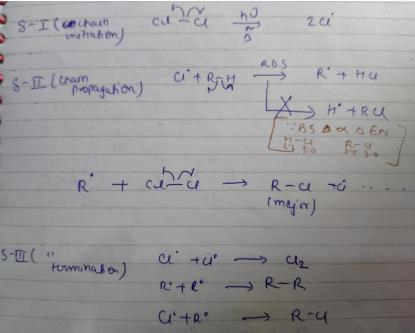 S-I (chain initiation) Cl—Cl hν Δ 2Cl•
S-II (chain propagation) Cl• + R—H RDS → R• + HCl
H• + RCl
∵ BS Δ α Δ EN
H-Cl R-Cl
2.1 3.0 2.5 3.0
R• + Cl—Cl → R-Cl + Cl• .....
(major)
S-III ( " termination) Cl• + Cl• → Cl2
R• + R• → R-R
Cl• + R• → R-Cl